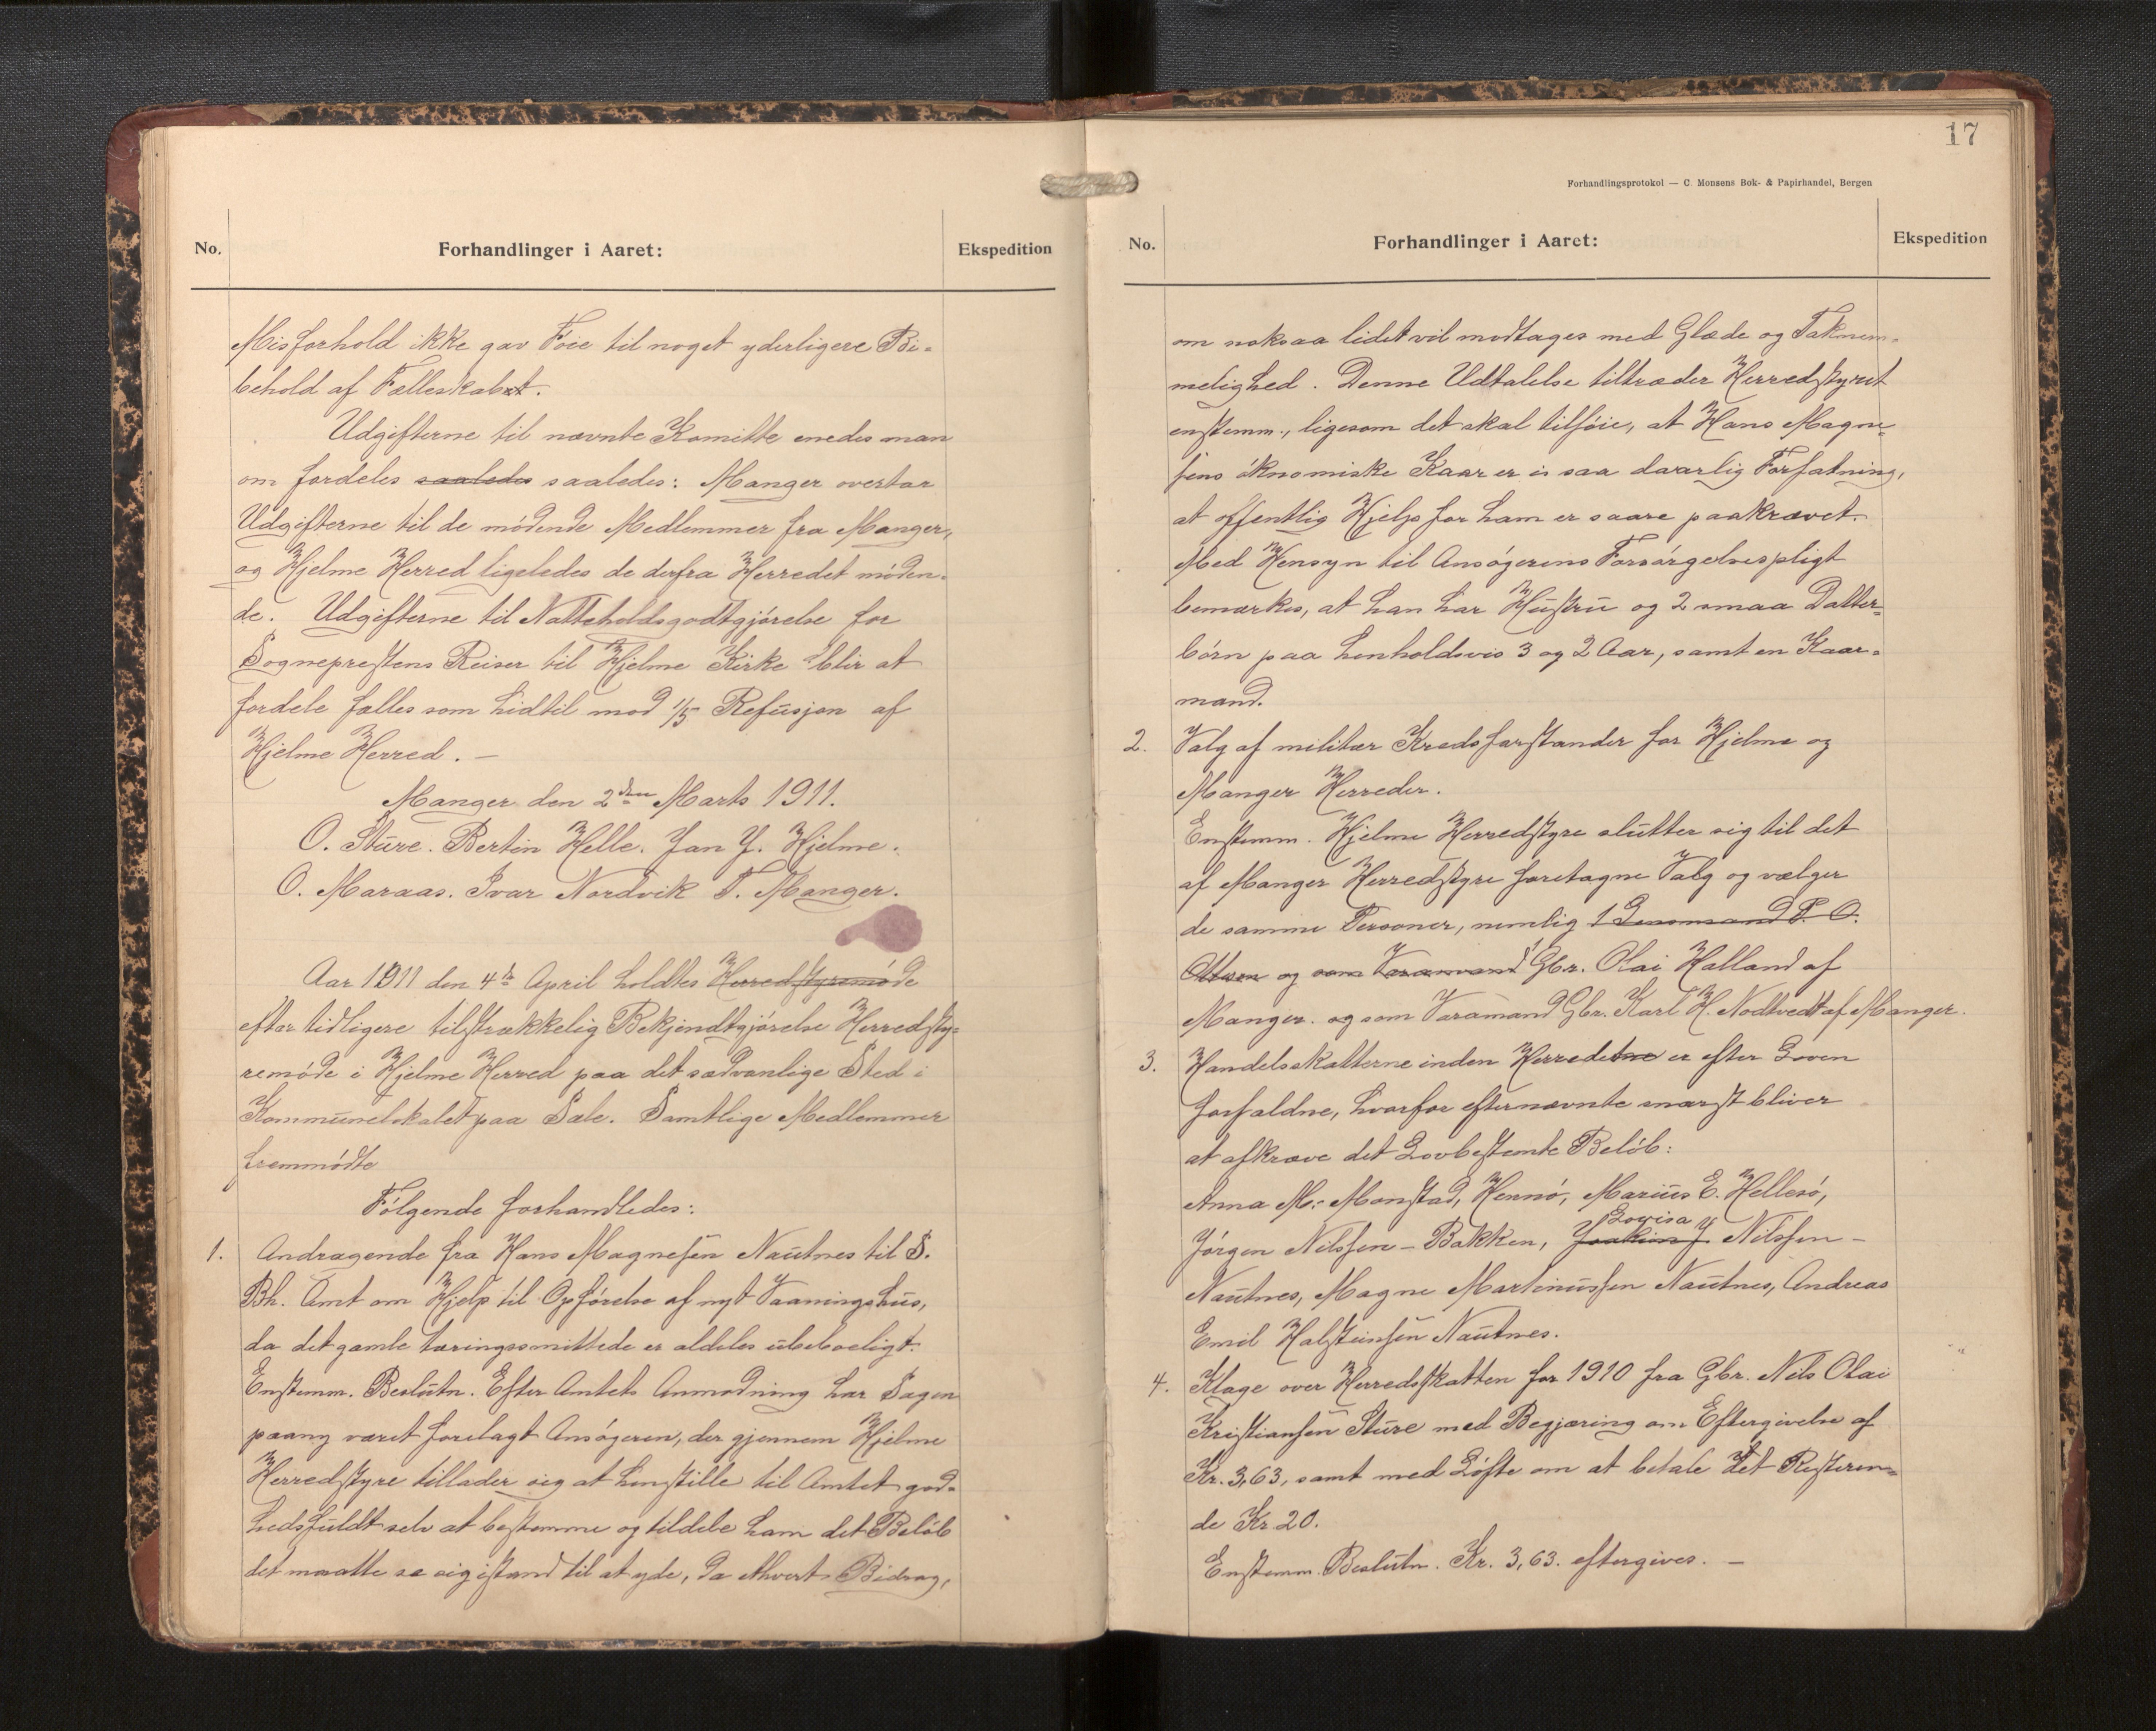 No.
Forhandlinger i Aaret:
Ekspedition
Misforhold ikke gav Føie til noget yderligere Bi-
behold af Fælleskabet.
Udgifterne til nævnte Komitte enedes man
om fordeles saaledes saaledes: Manger overtar
Udgifterne til de mødende Medlemmer fra Manger,
og Hjelme Herred ligeledes de derfra Herredet møden-
de. Udgifterne til Natteholdsgodtgjørelse for
Sogneprestens Reiser til Hjelme Kirke blir at
fordele fælles som hidtil mod 1/5 Refusjon af
Hjelme Herred. —
Manger den 2den Marts 1911.
O. Sture. Bertin Helle. Jan J. Hjelme.
O. Maraas. Ivar Nordvik T. Manger.
Aar 1911 den 4de April holdtes Herredstyremøde
efter tidligere tilstrækkelig Bekjendtgjørelse Herredsty-
remøde i Hjelme Herred paa det sædvanlige Sted i
Kommunelokalet paa Sæle. Samtlige Medlemmer
fremmødte
Følgende forhandledes:
1. Andragende fra Hans Magnesen Nautnes til S.
Bh. Amt om Hjelp til Opførelse af nyt Vaaningshus,
da det gamle tæringssmittede er aldeles ubeboeligt.
Enstemm. Beslutn. Efter Amtets Anmodning har Sagen
paany været forelagt Ansøgeren, der gjennem Hjelme
Herredstyre tillader sig at henstille til Amtet god-
hedsfuldt selv at bestemme og tildele ham det Beløb
det maatte se sig istand til at yde, da ethvert Bidrag,
17
Forhandlingsprotokol — C. Monsens Bok- & Papirhandel, Bergen
No.
Forhandlinger i Aaret:
Ekspedition
om noksaa lidet vil modtages med Glæde og Taknem-
melighed. Denne Udtalelse tiltræder Herredstyret
enstemm., ligesom det skal tilføie, at Hans Magne-
sens øknomiske Kaar er i saa daarlig Forfatning,
at offentlig Hjelp for ham er saare paakrævet.
Med Hensyn til Ansøgerens Forsørgelsespligt
bemærkes, at han har Hustru og 2 smaa Datter-
børn paa henholdsvis 3 og 2 Aar, samt en Kaar-
mand.
2. Valg af militær Kredsforstander for Hjelme og
Manger Herreder.
Enstemm. Hjelme Herredstyre slutter sig til det
af Manger Herredstyre foretagne Valg og vælger
de samme Personer, nemlig 1 Lensmand P. O.
Ottsen og som Varamand Gbr. Olai Halland af
Manger. og som Varamand Gbr. Karl H. Nodtvedt af Manger.
3. Handelsskatterne inden Herredetne er efter Loven
forfaldne, hvorfor efternævnte snarst bliver
at afkræve det Lovbestemte Beløb:
Anna M. Monstad, Hernø, Marius E. Hellesø,
Lovisa
Jørgen Nilssen – Bakken, Joakim J. Nilssen –
Nautnes, Magne Martinussen Nautnes, Andreas
Emil Halsteinsen Nautnes.
4. Klage over Herredsskatten for 1910 fra Gbr. Nils Olai
Kristiansen Sture med Begjæring om Eftergivelse af
Kr. 3,63, samt med Løfte om at betale det Resteren-
de Kr. 20.
Enstemm. Beslutn. Kr. 3,63. eftergives. —